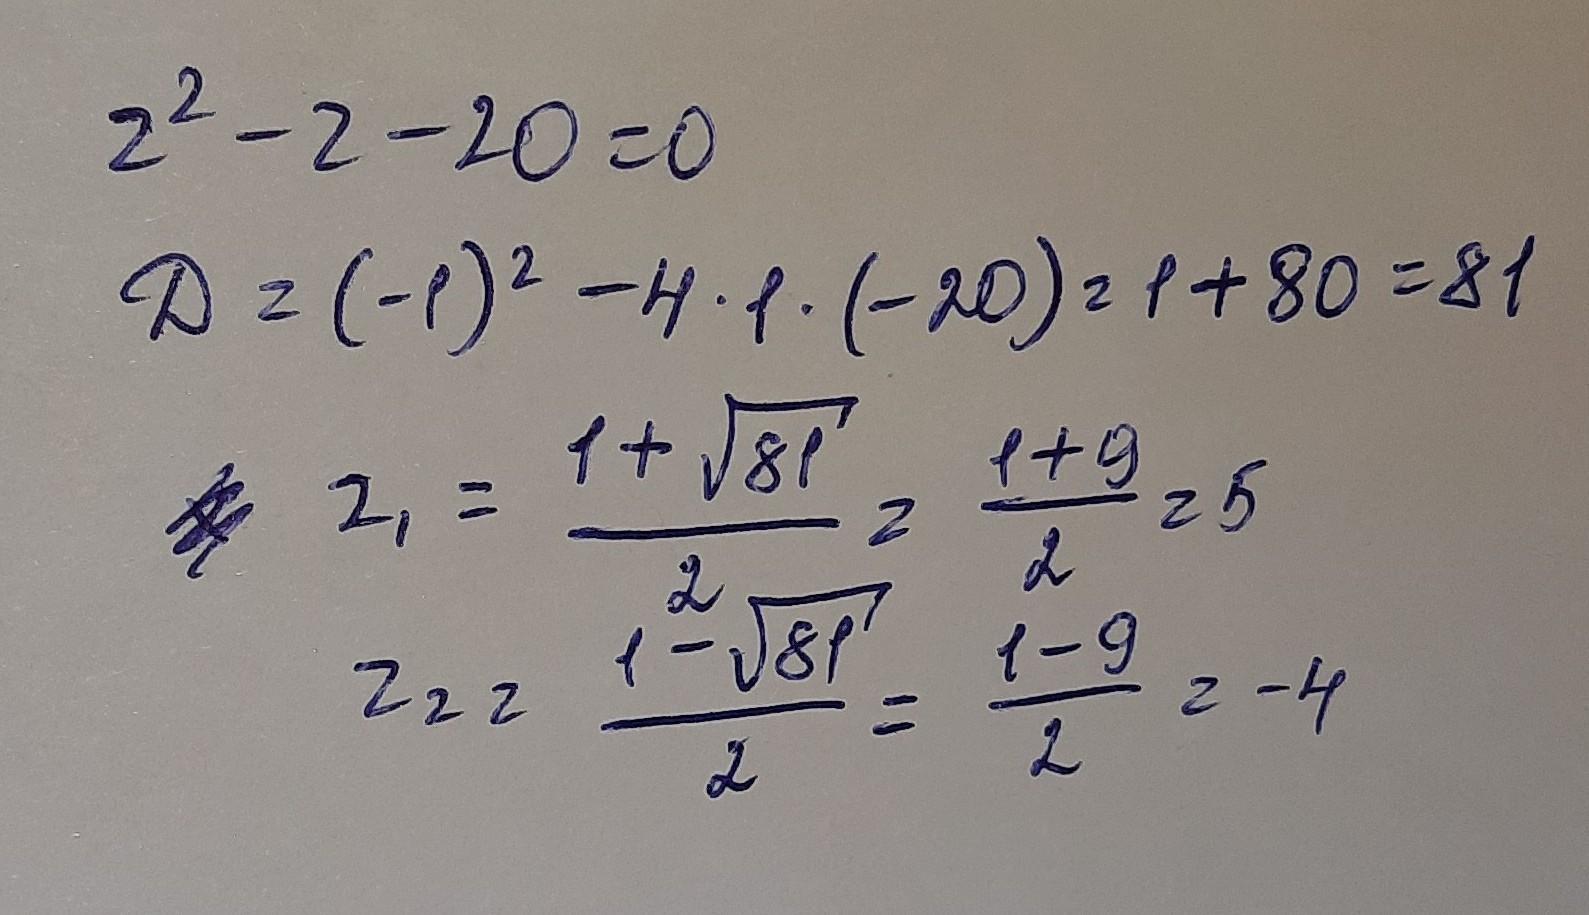 z² - z - 20 = 0
D = (-1)² - 4 · 1 · (-20) = 1 + 80 = 81
z₁ = (1 + √81)/2 = (1 + 9)/2 = 5
z₂ = (1 - √81)/2 = (1 - 9)/2 = -4